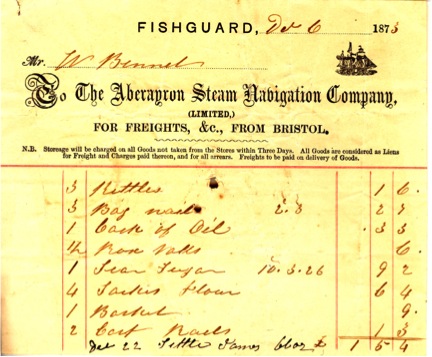 FISHGUARD, Oct 6 1873
Mr. W Bennet
To The Aberayron Steam Navigation Company,
(LIMITED,)
FOR FREIGHTS, &c., FROM BRISTOL.
N.B. Storeage will be charged on all Goods not taken from the Stores within Three Days. All Goods are considered as Liens
for Freight and Charges paid thereon, and for all arrears. Freights to be paid on delivery of Goods.
3 Kettles 1 6
3 Bag nails 2.3 2 7
1 Cask of Oil 3 3
6
1 10.3.26 9 2
4 Sacks Flour 6 4
1 Basket 9
2 Nails 1 3
22 Settle James £ 1 5 4